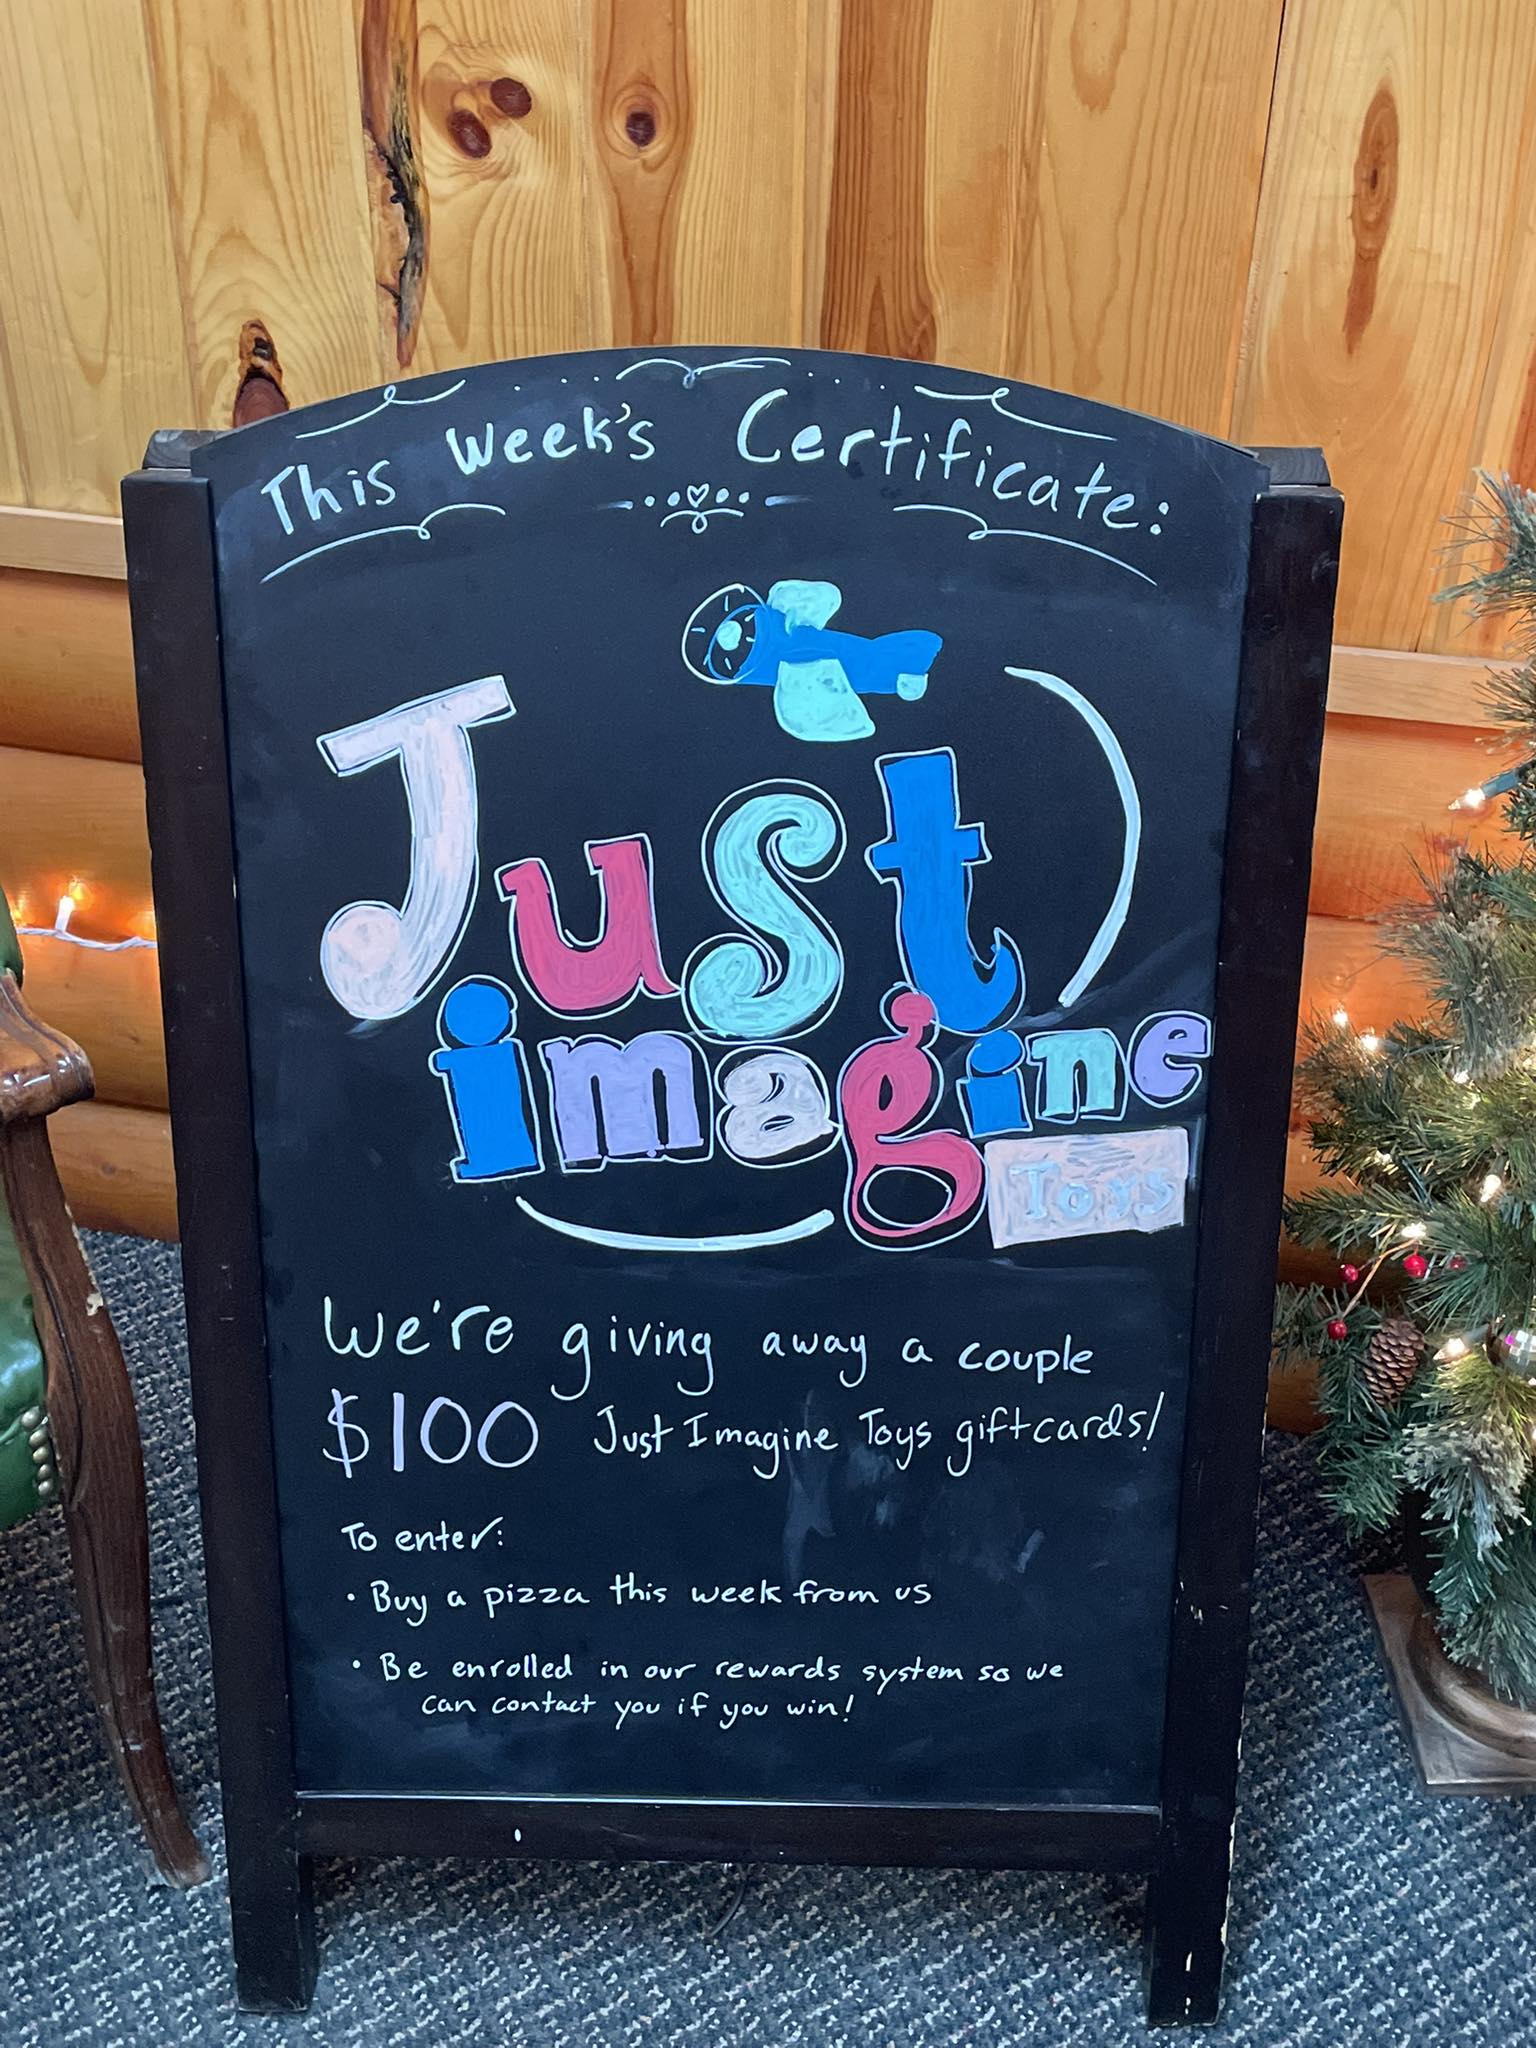 This Week's Certificate:
Just
imagine
Toys
We're giving away a couple
$100 Just Imagine Toys giftcards!
To enter:
• Buy a pizza this week from us
• Be enrolled in our rewards system so we
can contact you if you win!